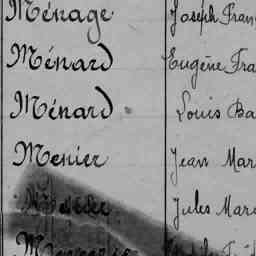 Ménage Joseph Fran
Ménard Eugène Fra
Ménard Louis Ba
Menier Jean Mar
Jules Mar